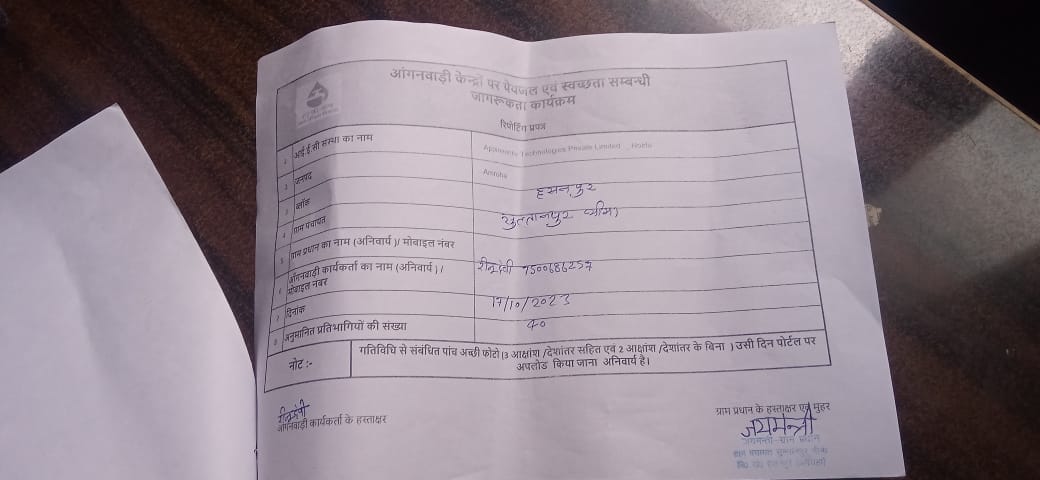 आंगनवाड़ी केन्द्रों पर पेयजल एवं स्वच्छता सम्बन्धी
जागरूकता कार्यक्रम
रिपोर्टिंग प्रपत्र
1 आई.ई.सी संस्था का नाम Technologies Private Limited , Noida
2 जनपद Amroha
3 ब्लॉक हसनपुर
4 ग्राम पंचायत सुल्तानपुर
5 ग्राम प्रधान का नाम (अनिवार्य )/ मोबाइल नंबर
6 आँगनवाड़ी कार्यकर्ता का नाम (अनिवार्य ) /
मोबाइल नंबर
7500686257
7 दिनांक 17/10/2023
8 अनुमानित प्रतिभागियों की संख्या 40
नोट :- गतिविधि से संबंधित पांच अच्छी फोटो (3 आक्षांश /देशांतर सहित एवं 2 आक्षांश /देशांतर के बिना ) उसी दिन पोर्टल पर
अपलोड किया जाना अनिवार्य है।
आंगनवाड़ी कार्यकर्ता के हस्ताक्षर
ग्राम प्रधान के हस्ताक्षर एवं मुहर
जयमन्त्री
जयमन्ती-ग्राम प्रधान